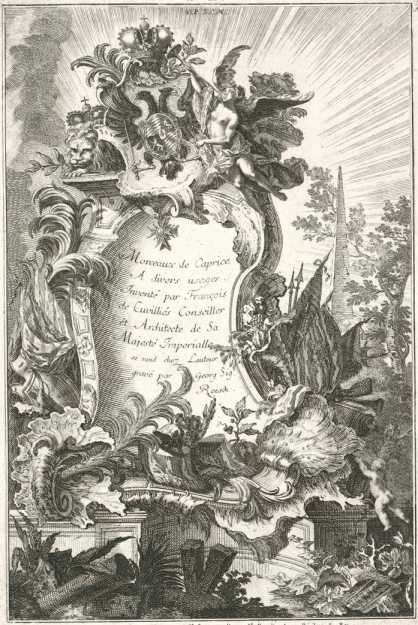 Morceaux de Caprice
A divers usages.
Inventé par François
de Cuvilliés Conseiller
et Architecte de Sa
Majesté Imperialle
se vend chez Lauteur
gravé par Georg Sig
Roesch.